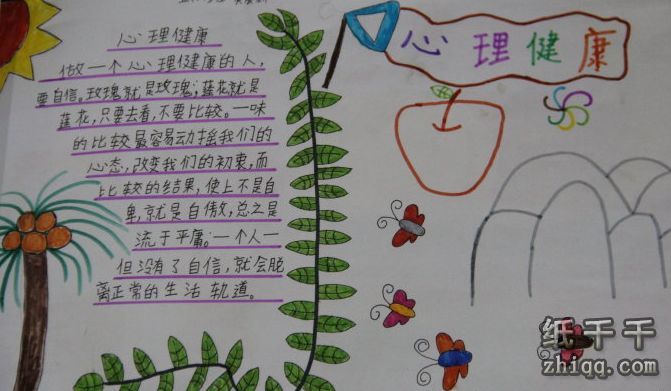 心理健康
做一个心理健康的人,
要自信。玫瑰就是玫瑰;莲花就是
莲花,只要去看,不要比较。一味
的比较最容易动摇我们的
心态,改变我们的初衷,而
比较的结果,使上不是自
卑,就是自傲,总之是
流于平庸。一个人一
但没有了自信,就会脱
离正常的生活轨道。
心理健康
纸千千
zhiqq.com